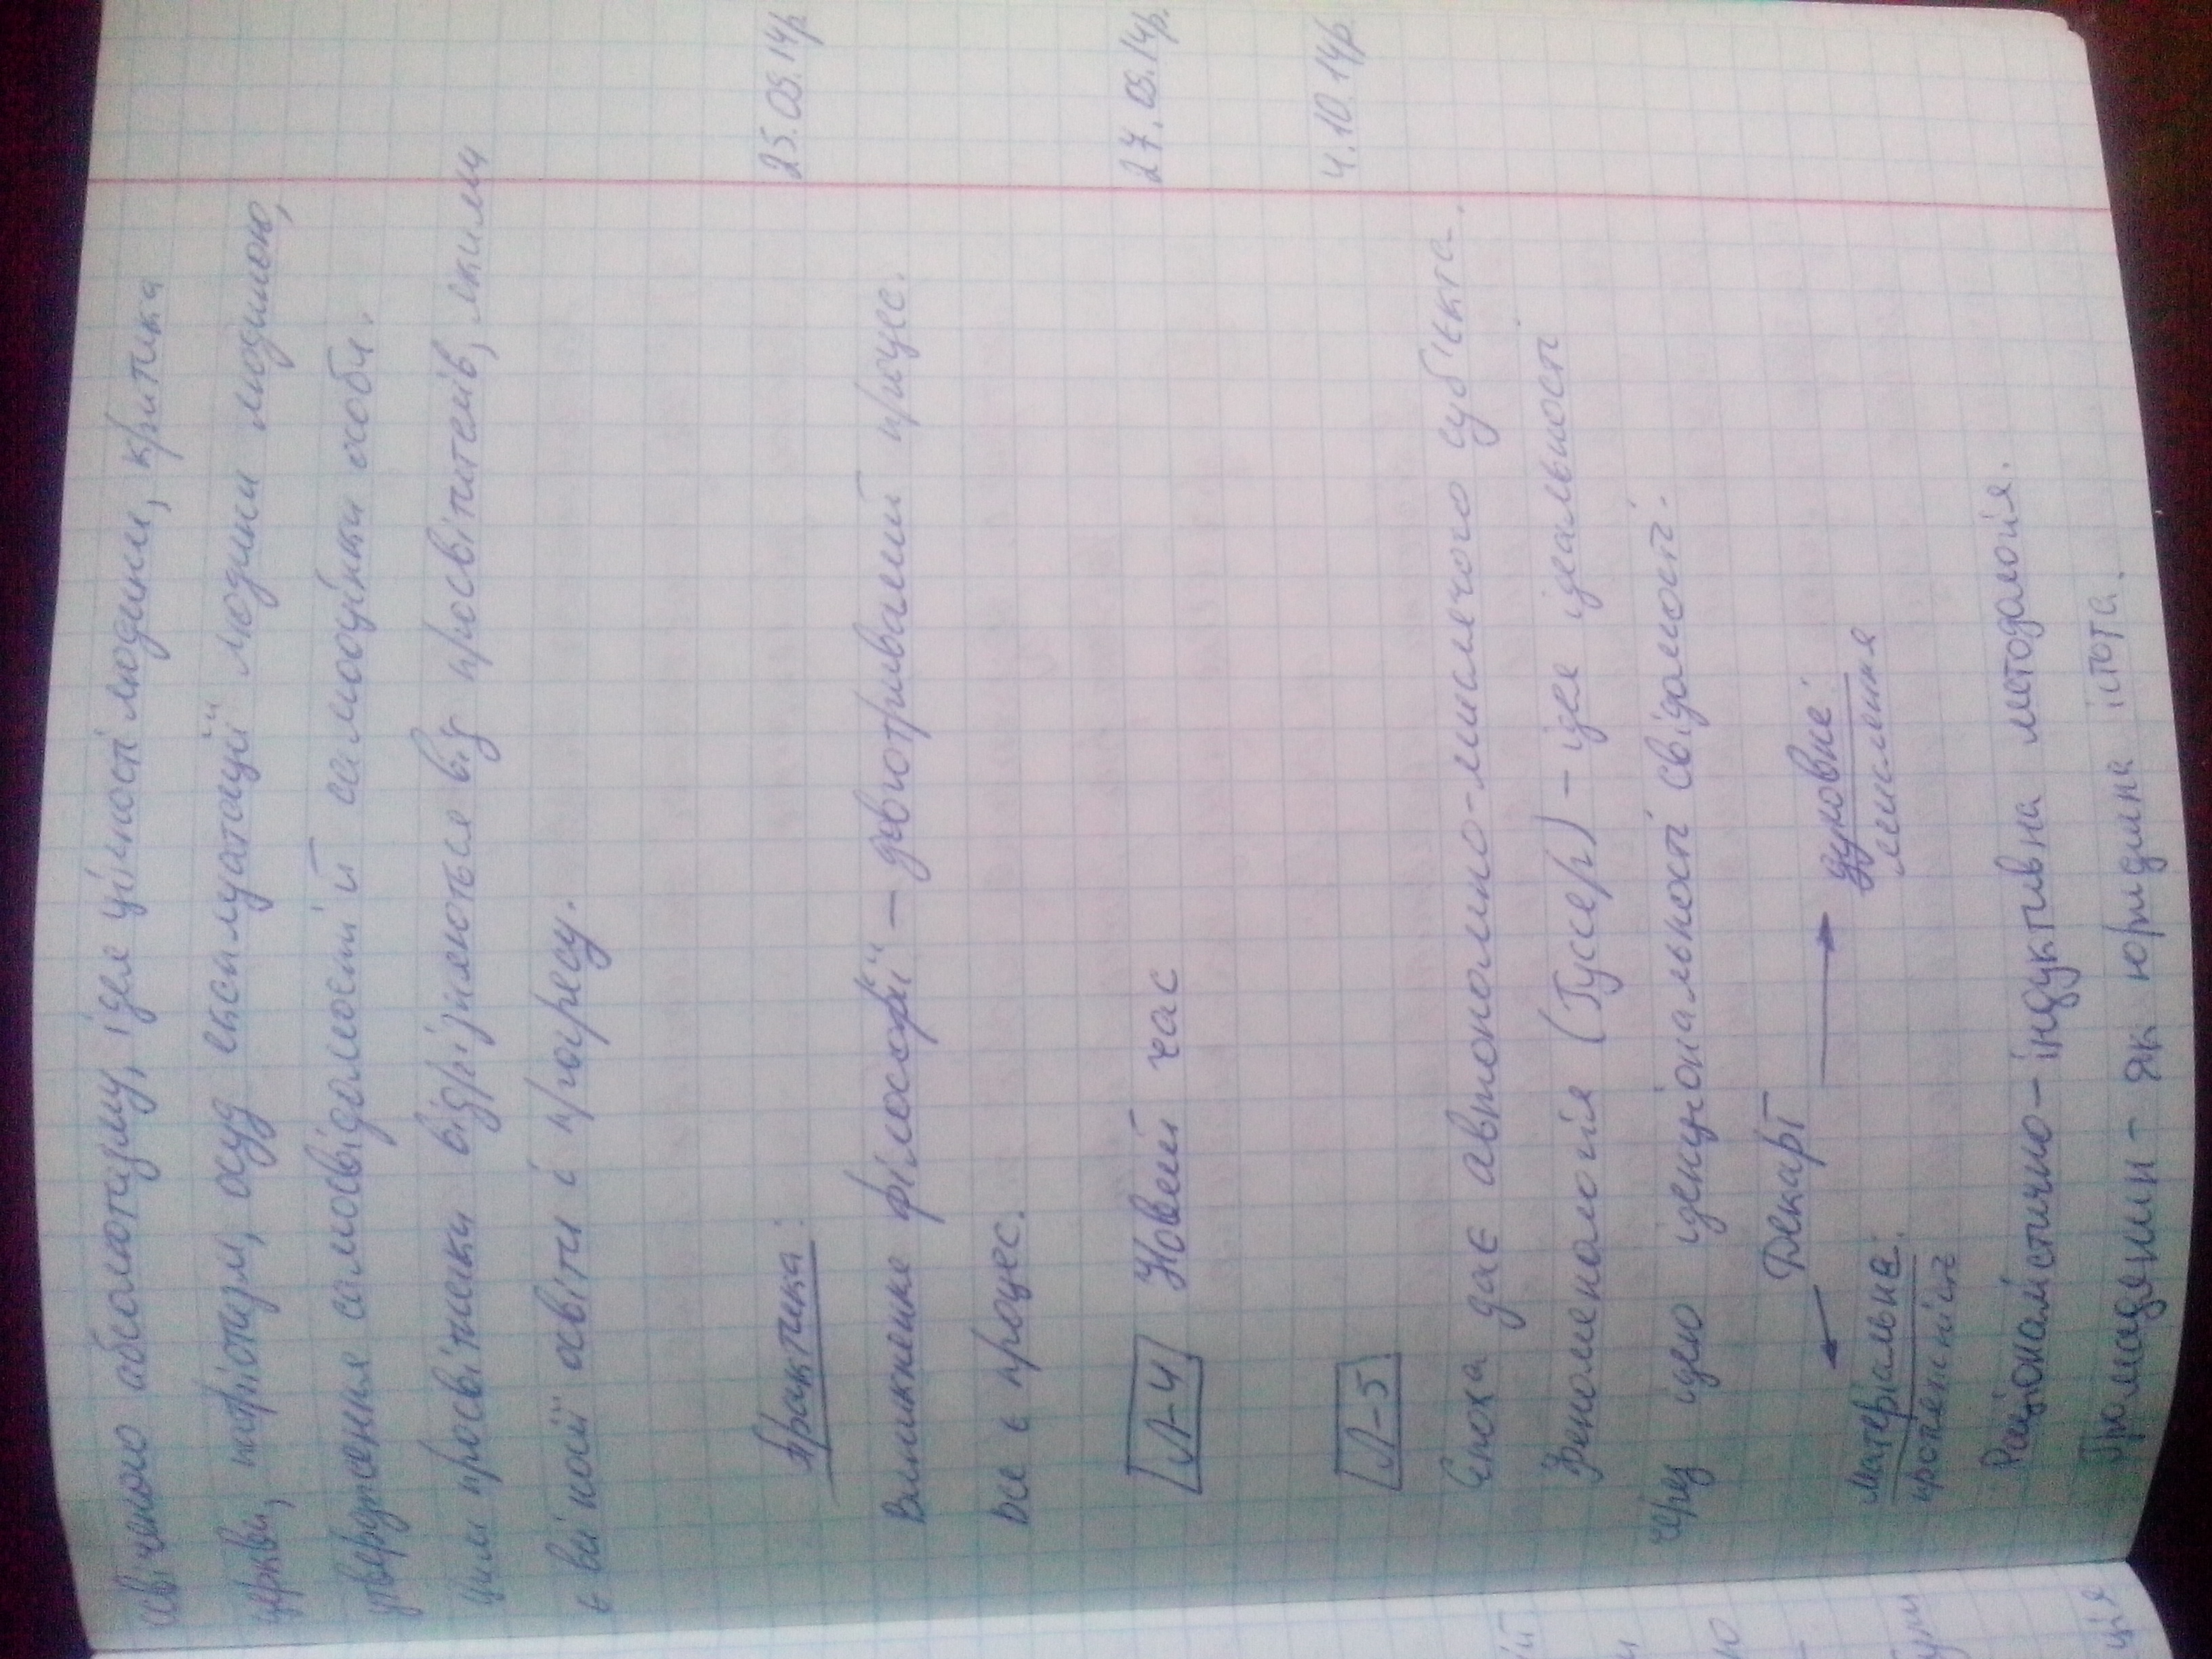 освіченого абсолютизму, ідея цінності людини, критика
церкви, патріотизм, осуд експлуатації людини людиною,
утвердження самосвідомості й самооцінки особи.
Цим просвітники відрізняються від просвітителів, якими
є всі носії освіти і прогресу.
Практика:
25.09.14р
Виникнення філософії – довготривалий процес.
Все є процес.
Л-4 Новий час
27.09.14р.
Л-5
4.10.14р.
Епоха дає автономно-мислячого суб'єкта.
Феноменологія (Гуссер) – ідея ідеальності
через ідею іденціональності свідомості.
Декарт
матеріальне:
духовне:
протяжність
мислення
Раціоналістично – індуктивна методологія.
Громадянин – як юридична істота.
ій
и
ю
–
були
ція